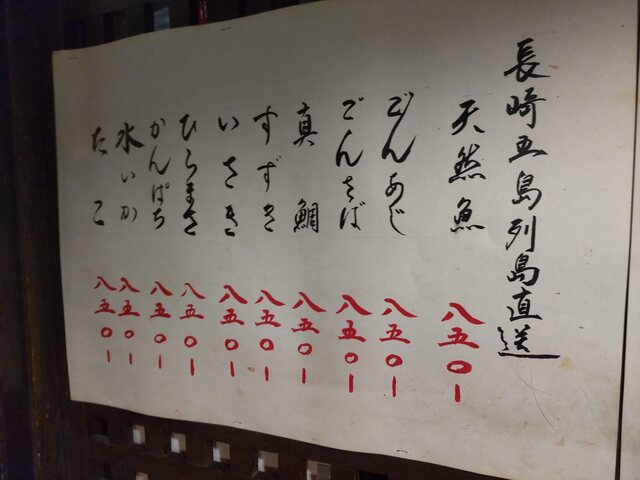 長崎五島列島直送
天然魚 八五〇ー
ごんあじ 八五〇ー
ごんさば 八五〇ー
真鯛 八五〇ー
すずき 八五〇ー
いさき 八五〇ー
ひらまさ 八五〇ー
かんぱち 八五〇ー
水いか 八五〇ー
たこ 八五〇ー